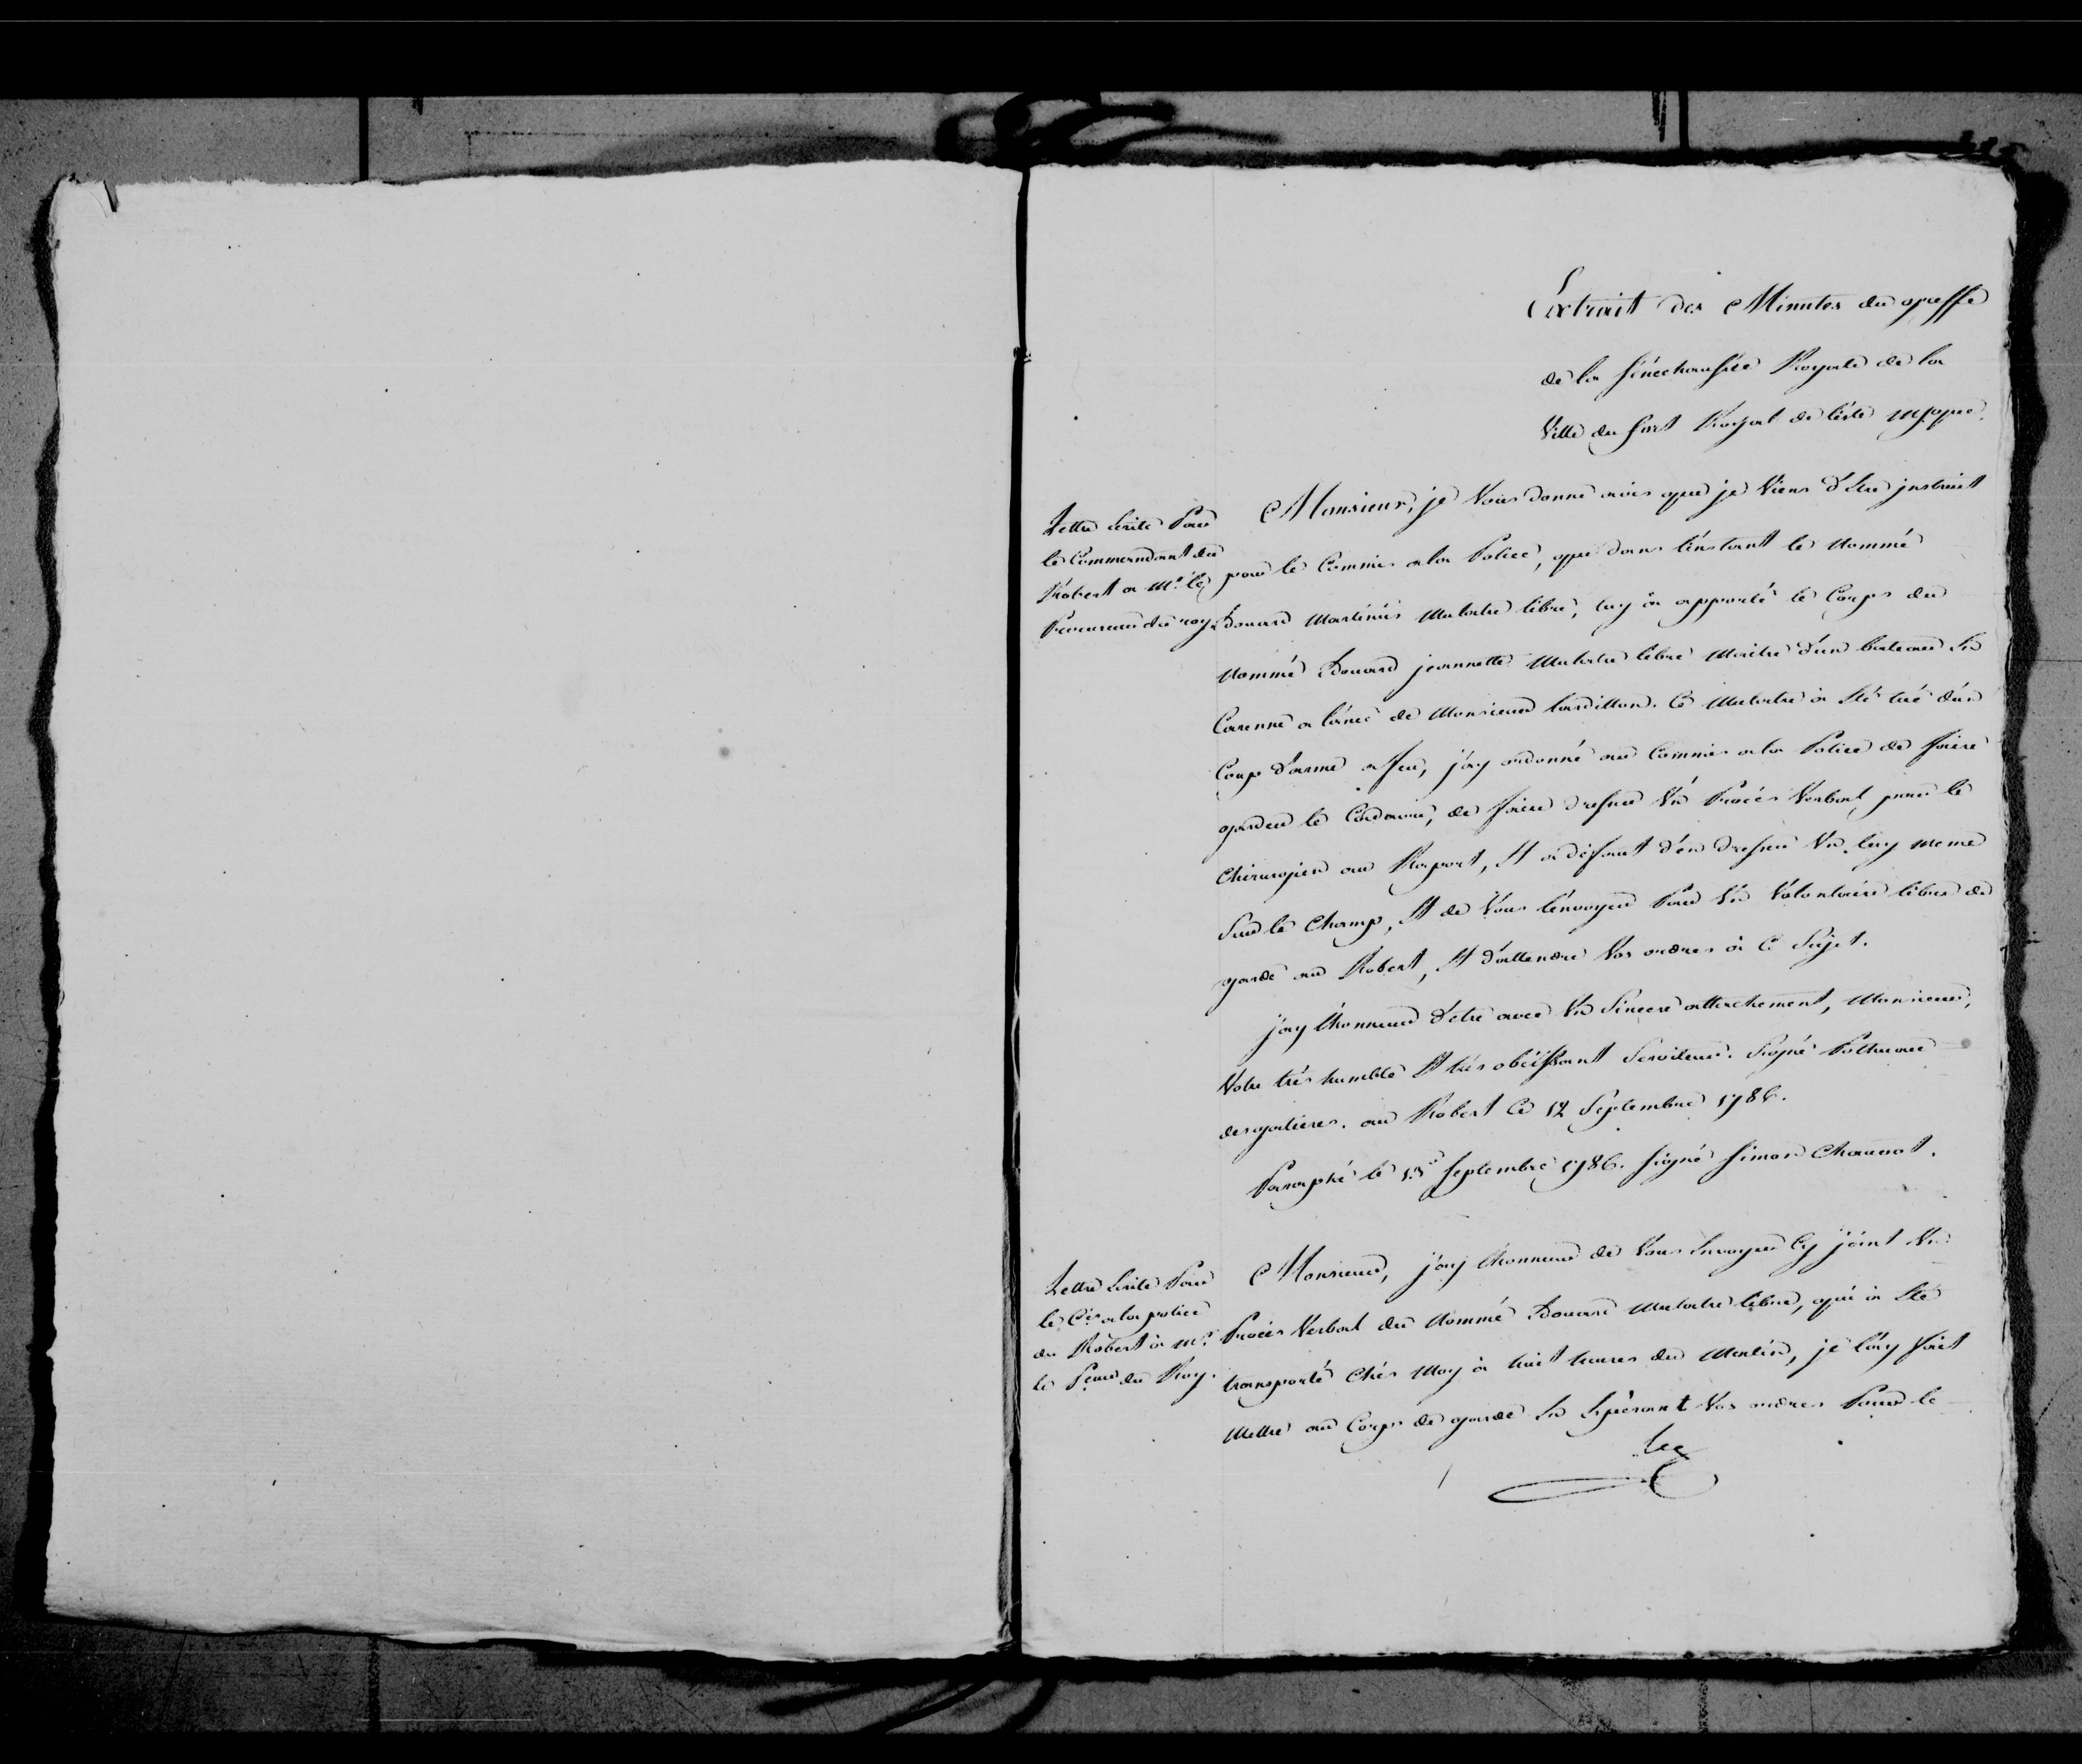 Extrait des Minutes du greffe
de la sénéchaussée Royale de la
Ville du fort Royal de l'isle mque.
Lettre Ecrite Par
le Commandant du
Robert a Mr. le
Procureur du roy.
Monsieur, je Vous donne avis que je Viens d'Etre jnstruit
par le Commis a la Police, que dans l'instant le Nommé
Edouard Martinés Mulatre libre, luy à apporté le Corps du
Nommé Edouard jeannette Mulatre libre Maitre d'un bateau En
Carenne a l'ance de Monsieur tardillon. Ce Mulatre à Eté tué d'un
Coup d'arme a feu, j'ay ordonné au Commis a la Police de faire
garder le Cadavre, de faire dresser Un Procès Verbal par le
Chirurgien au Raport, Et a défaut d'en dresser Un luy meme
Sur le Champ, Et de Vous l'envoyer Par Un Volontaire libre de
garde au Robert, Et d'attendre Vos ordres à Ce Sujet.
j'ay l'honneur d'etre avec Un Sincere attachement, Monsieur,
Votre très humble Et très obéissant Serviteur. Signé
desgatieres. au Robert Ce 12 Septembre 1786.
Paraphé le 13e. Septembre 1786. Signé Simon Chauvot.
Lettre Ecrite Par
le Cis. a la police
du Robert à Mr.
le Pceur du Roy.
Monsieur, j'ay l'honneur de Vous Envoyer Cy joint Un
Procès Verbal du Nommé Edouard Mulatre libre, qui à Eté
transporté Chés Moy à huit heures du Matin, je l'ay fait
Mettre au Corps de garde En Espérant Vos ordres Pour le